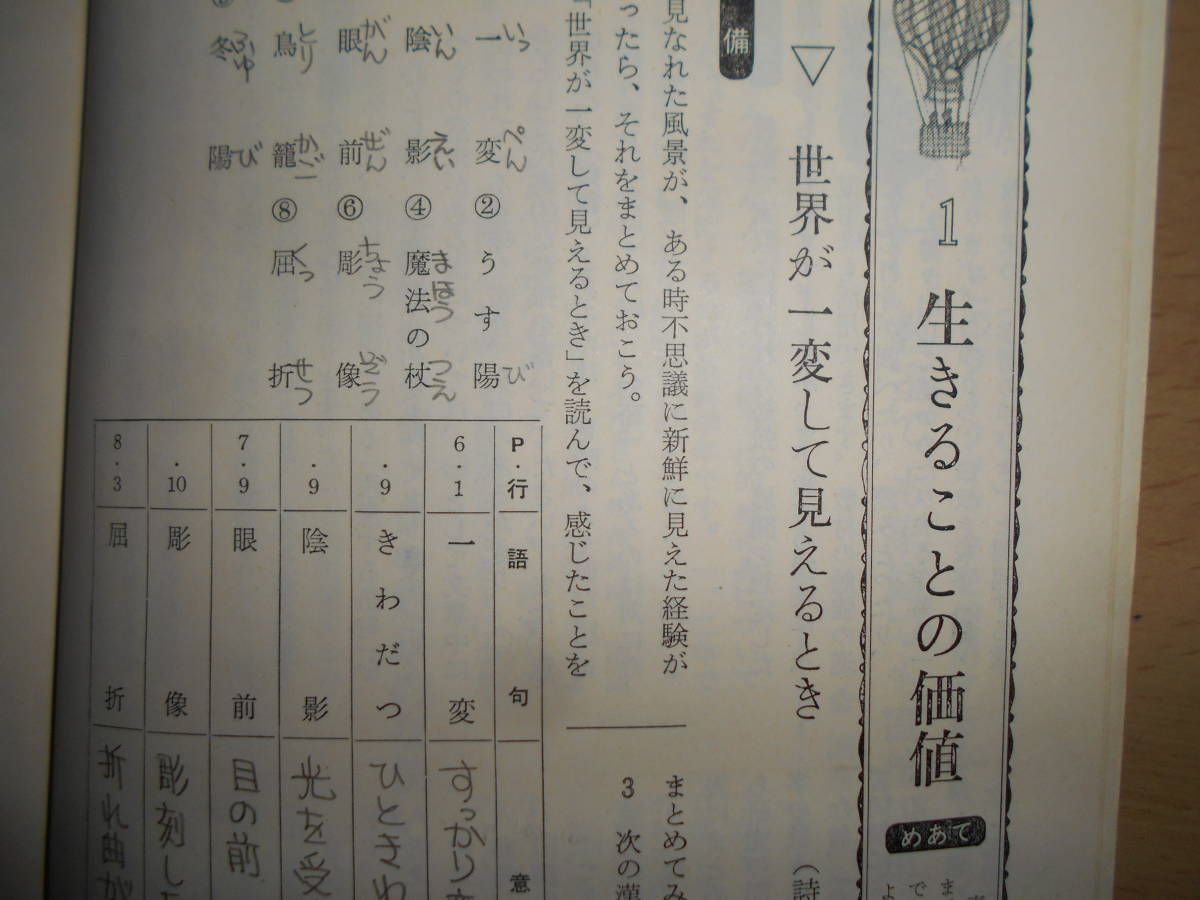 1 生きることの価値
めあて
▽ 世界が一変して見えるとき
(詩
備
見なれた風景が、ある時不思議に新鮮に見えた経験が
ったら、それをまとめておこう。
「世界が一変して見えるとき」を読んで、感じたことを
まとめてみ
3 次の漢
一変 いっぺん
② うす陽 び
陰影 いんえい
④ 魔法の杖 まほう つえ
眼前 がんぜん
⑥ 彫像 ちょうぞう
鳥籠 とりかご
⑧ 屈折 くっせつ
冬陽 ふゆび
P・行 語句 意
6・1 一変 すっかり
・9 きわだつ ひときわ
・9 陰影 光を受
7・9 眼前 目の前
・10 彫像 彫刻した
8・3 屈折 折れ曲が